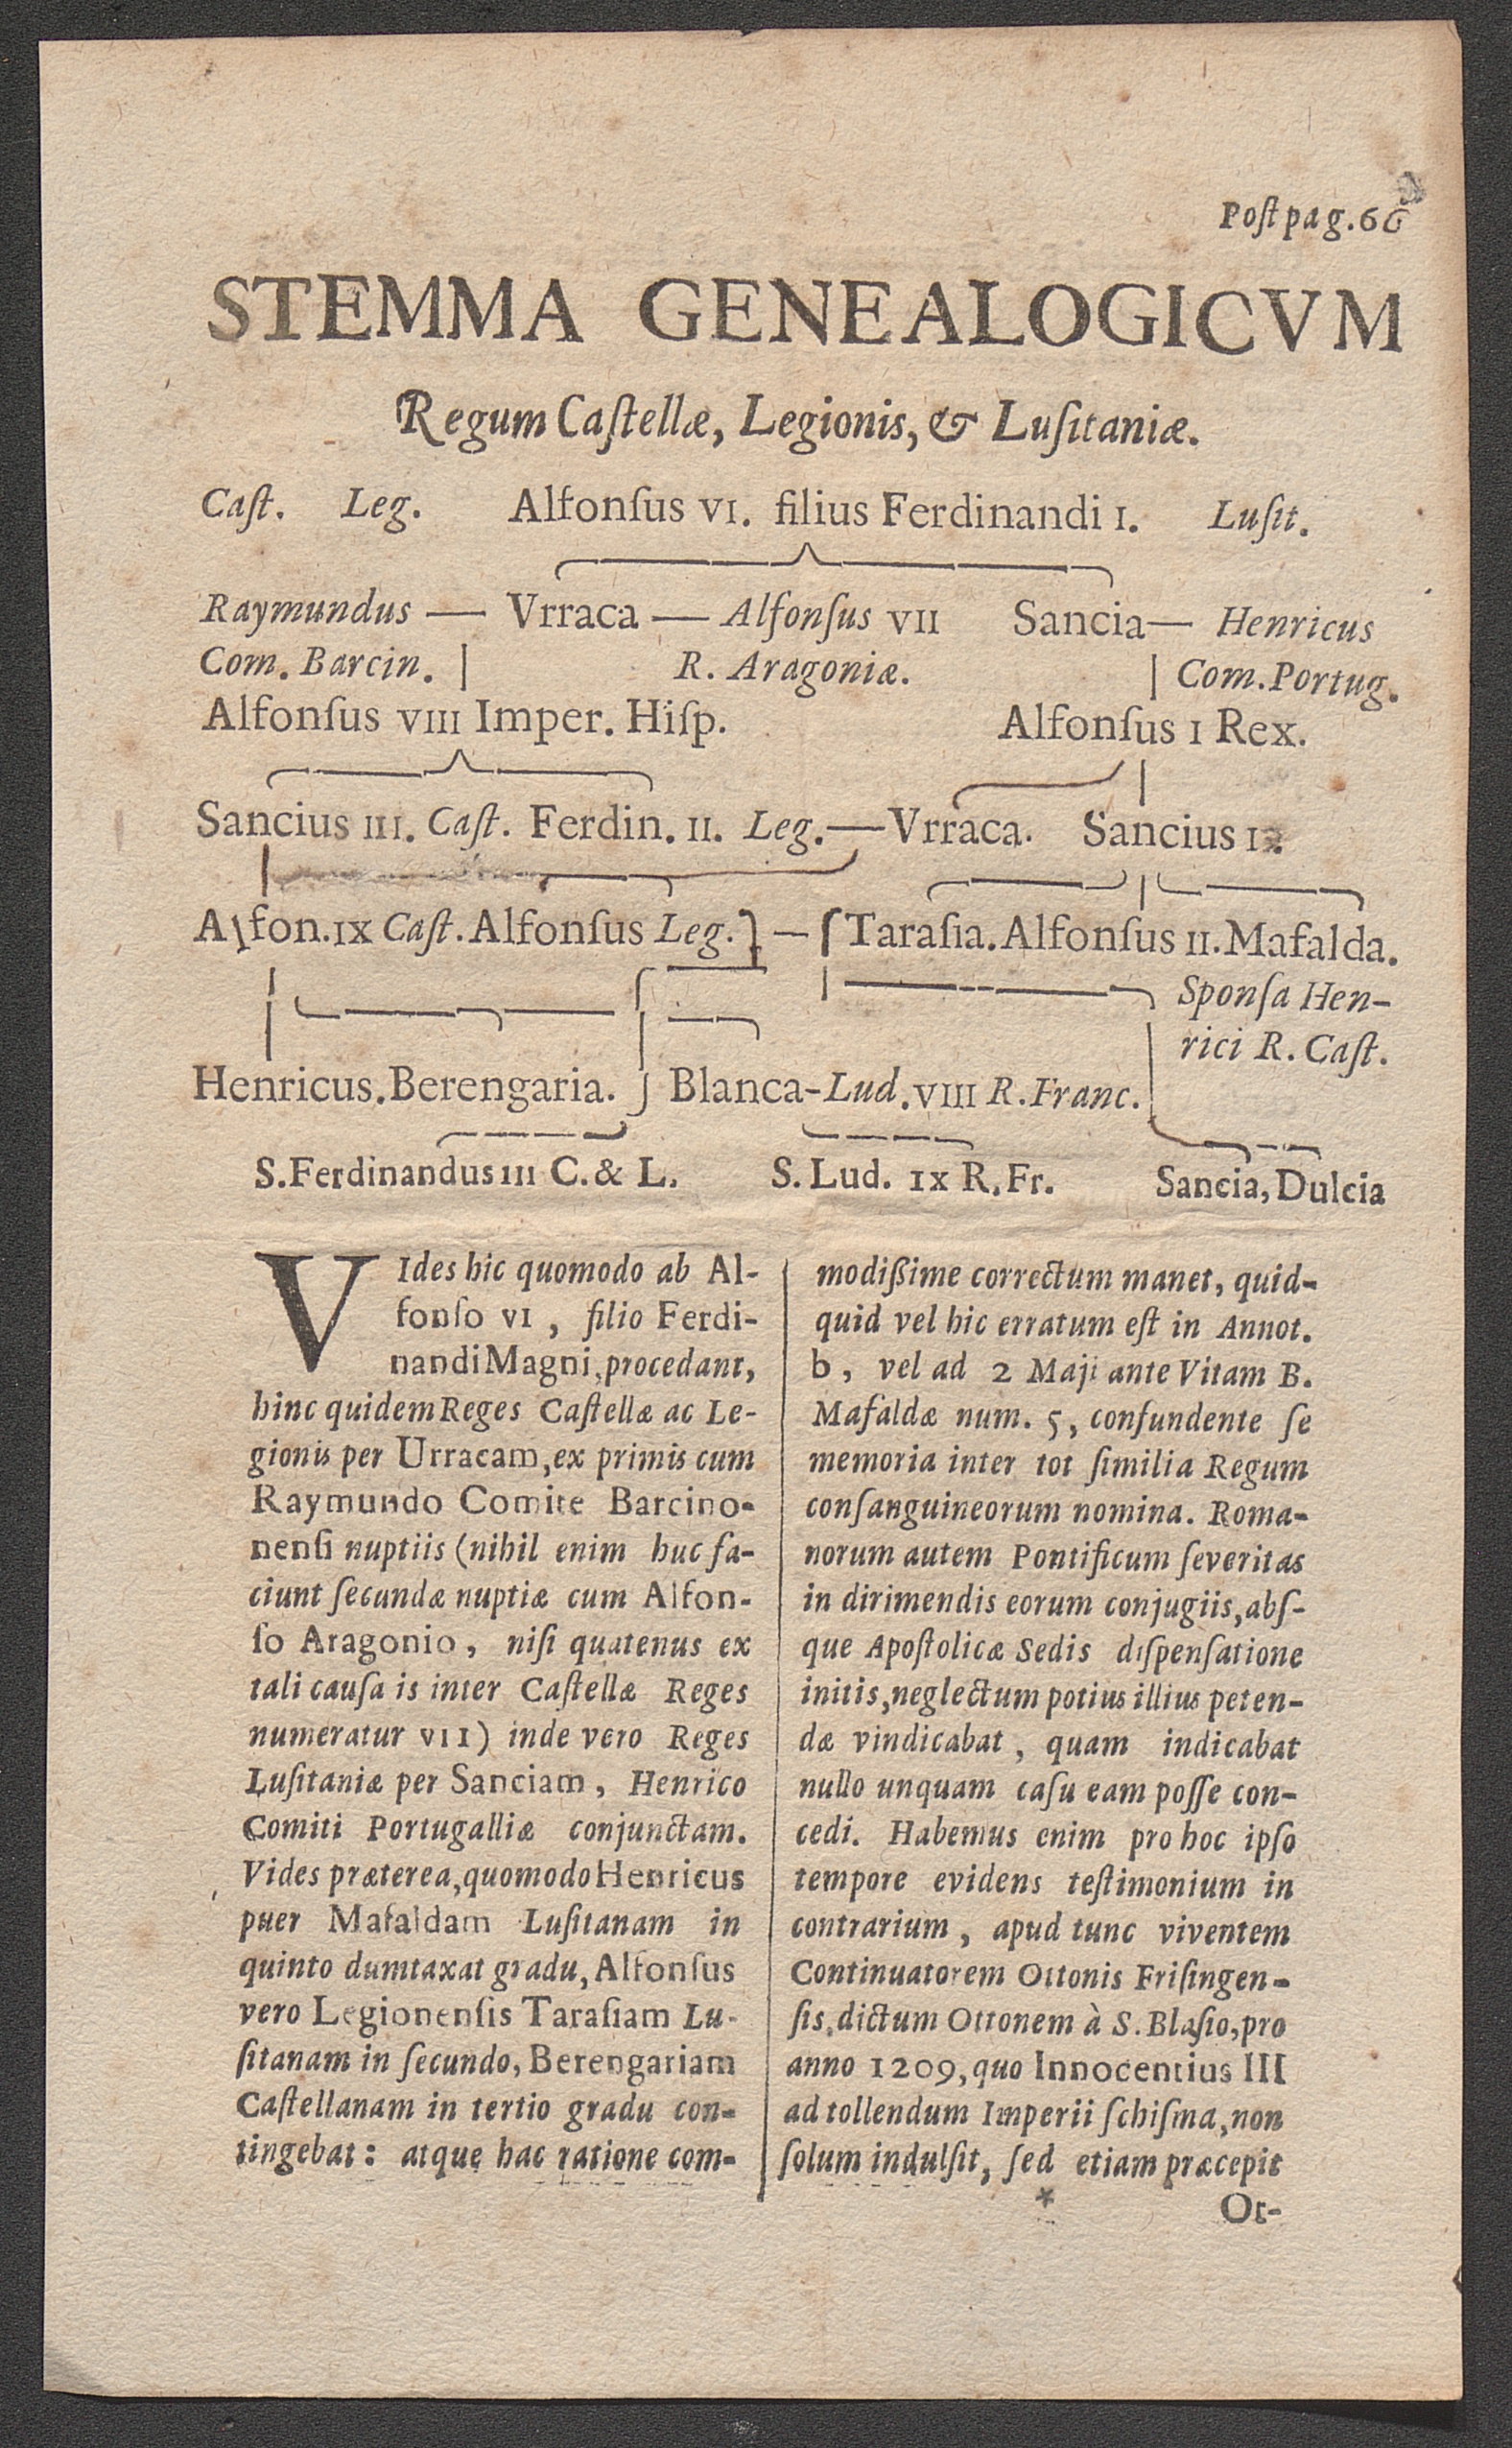 Poſt pag. 66
STEMMA GENEALOGICVM
Regum Caſtellæ, Legionis, & Luſitaniæ.
Caſt. Leg. Alfonſus VI. filius Ferdinandi I. Luſit.
Raymundus — Vrraca — Alfonſus VII Sancia — Henricus
Com. Barcin. R. Aragoniæ. Com. Portug.
Alfonſus VIII Imper. Hiſp. Alfonſus I Rex.
Sancius III. Caſt. Ferdin. II. Leg. — Vrraca. Sancius I.
Alfon. IX Caſt. Alfonſus Leg. } — { Taraſia. Alfonſus II. Mafalda.
Sponſa Hen-
rici R. Caſt.
Henricus. Berengaria. Blanca - Lud. VIII R. Franc.
S. Ferdinandus III C. & L. S. Lud. IX R. Fr. Sancia, Dulcia
VIdes hic quomodo ab Al-
fonſo VI, filio Ferdi-
nandi Magni, procedant,
hinc quidem Reges Caſtellæ ac Le-
gionis per Urracam, ex primis cum
Raymundo Comite Barcino-
nenſi nuptiis (nihil enim huc fa-
ciunt ſecundæ nuptiæ cum Alfon-
ſo Aragonio, niſi quatenus ex
tali cauſa is inter Caſtellæ Reges
numeratur VII) inde vero Reges
Luſitaniæ per Sanciam, Henrico
Comiti Portugalliæ conjunctam.
Vides præterea, quomodo Henricus
puer Mafaldam Luſitanam in
quinto dumtaxat gradu, Alfonſus
vero Legionenſis Taraſiam Lu-
ſitanam in ſecundo, Berengariam
Caſtellanam in tertio gradu con-
tingebat: atque hac ratione com-
modißime correctum manet, quid-
quid vel hic erratum eſt in Annot.
b, vel ad 2 Maji ante Vitam B.
Mafaldæ num. 5, confundente ſe
memoria inter tot ſimilia Regum
conſanguineorum nomina. Roma-
norum autem Pontificum ſeveritas
in dirimendis eorum conjugiis, abſ-
que Apoſtolicæ Sedis diſpenſatione
initis, neglectum potius illius peten-
dæ vindicabat, quam indicabat
nullo unquam caſu eam poſſe con-
cedi. Habemus enim pro hoc ipſo
tempore evidens teſtimonium in
contrarium, apud tunc viventem
Continuatorem Ottonis Friſingen-
ſis, dictum Ottonem à S. Blaſio, pro
anno 1209, quo Innocentius III
ad tollendum Imperii ſchiſma, non
ſolum indulſit, ſed etiam præcepit
* Ot-